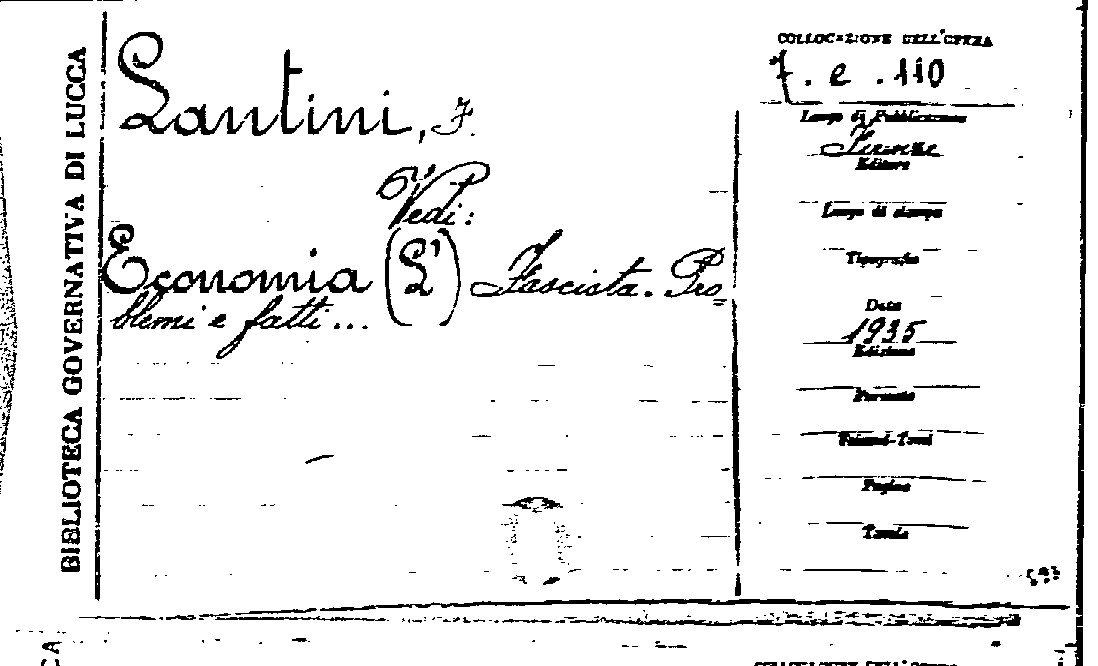 BIBLIOTECA GOVERNATIVA DI LUCCA
Lantini, F.
Vedi:
Economia (L') Fascista. Pro=
blemi e fatti...
COLLOCAZIONE DELL'OPERA
7. e . 110
Luogo di Pubblicazione
Firenze
Editore
Luogo di stampa
Tipografia
Data
1935
Edizione
Formato
Volumi-Tomi
Pagine
Tavole
COLLOCAZIONE DELL'OPERA